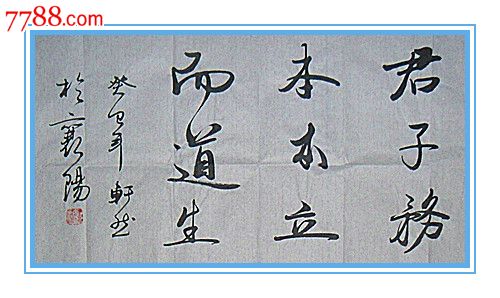 7788.com
君子務
本本立
而道生
癸巳年軒然
於襄陽